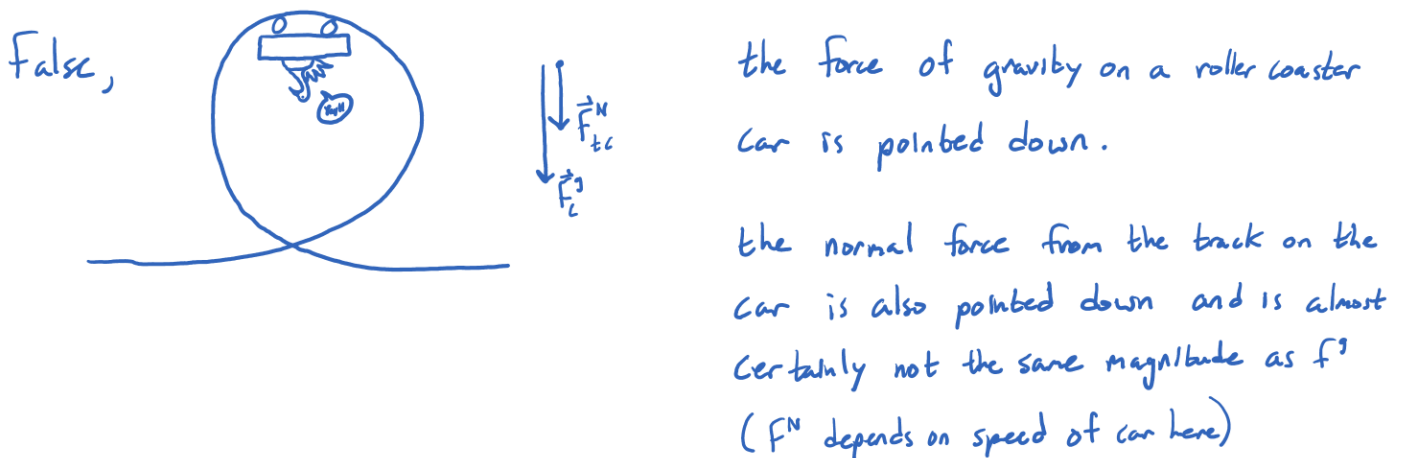 False,
F⃗ᴺtc
F⃗ᵍc
the force of gravity on a roller coaster
car is pointed down.
the normal force from the track on the
car is also pointed down and is almost
certainly not the same magnitude as Fᵍ
(Fᴺ depends on speed of car here)